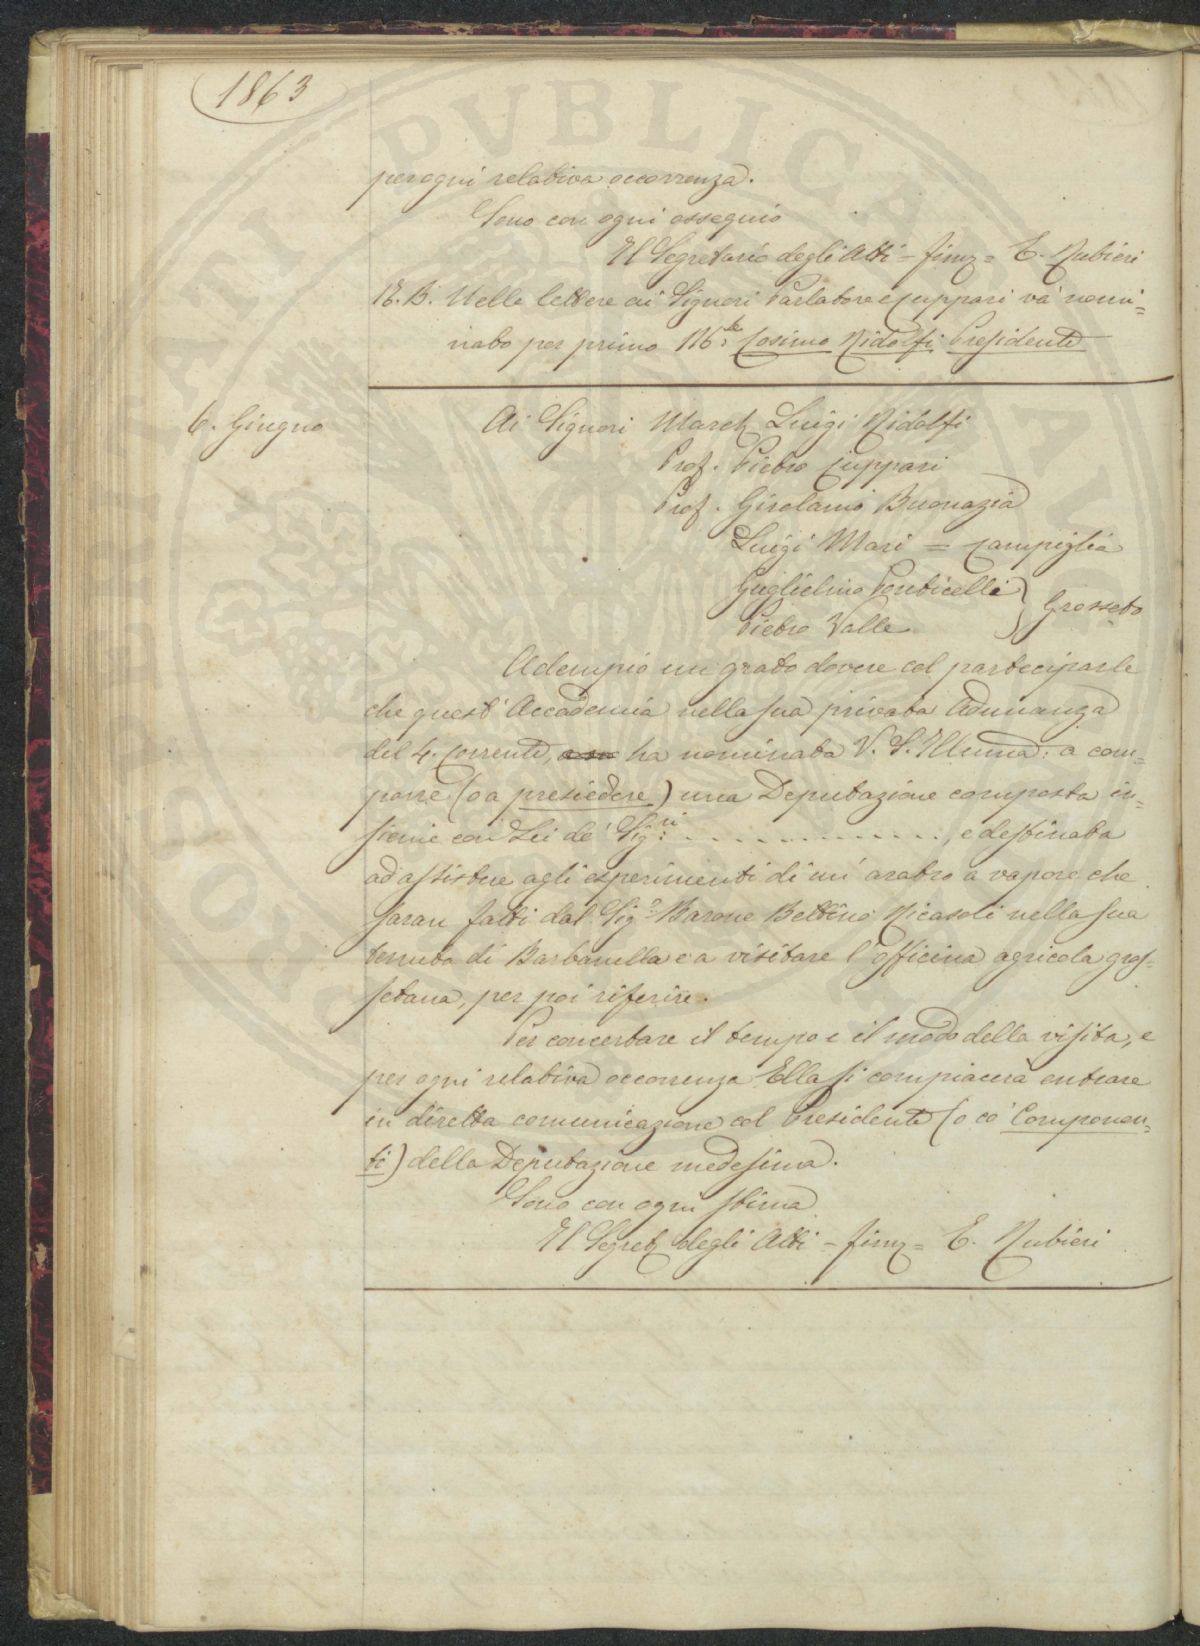 1863
per ogni relativa occorrenza.
Sono con ogni ossequio
Il Segretario degli Atti = firm = E. Rubieri
N.B. Nelle lettere ai Signori Parlatore e Cuppari và nomi=
nato per primo M.se Cosimo Ridolfi Presidente
6. Giugno
Ai Signori March Luigi Ridolfi
Prof. Pietro Cuppari
Prof. Girolamo Buonazia
Luigi Mari = Campiglia
Guglielmo Ponticelli } Grosseto
Pietro Valle
Adempio un grato dovere col parteciparle
che quest' Accademia nella sua privata Adunanza
del 4. Corrente, ha nominata V. S. Illuma: a com=
porre (o a presiedere) una Deputazione composta in=
sieme con Lei de' Sig:ri . . . . . . . . . . . . . , e destinata
ad assistere agli esperimenti di un' aratro a vapore che
saran fatti dal Sig.r Barone Bettino Ricasoli nella sua
tenuta di Barbanella e a visitare l'officina agricola gros=
setana, per poi riferire.
Per concertare il tempo e il modo della visita, e
per ogni relativa occorrenza Ella si compiacerà entrare
in diretta comunicazione col Presidente (o co' Componen=
ti) della Deputazione medesima.
Sono con ogni stima
Il Segret degli Atti = firm = E. Rubieri
PVBLICA